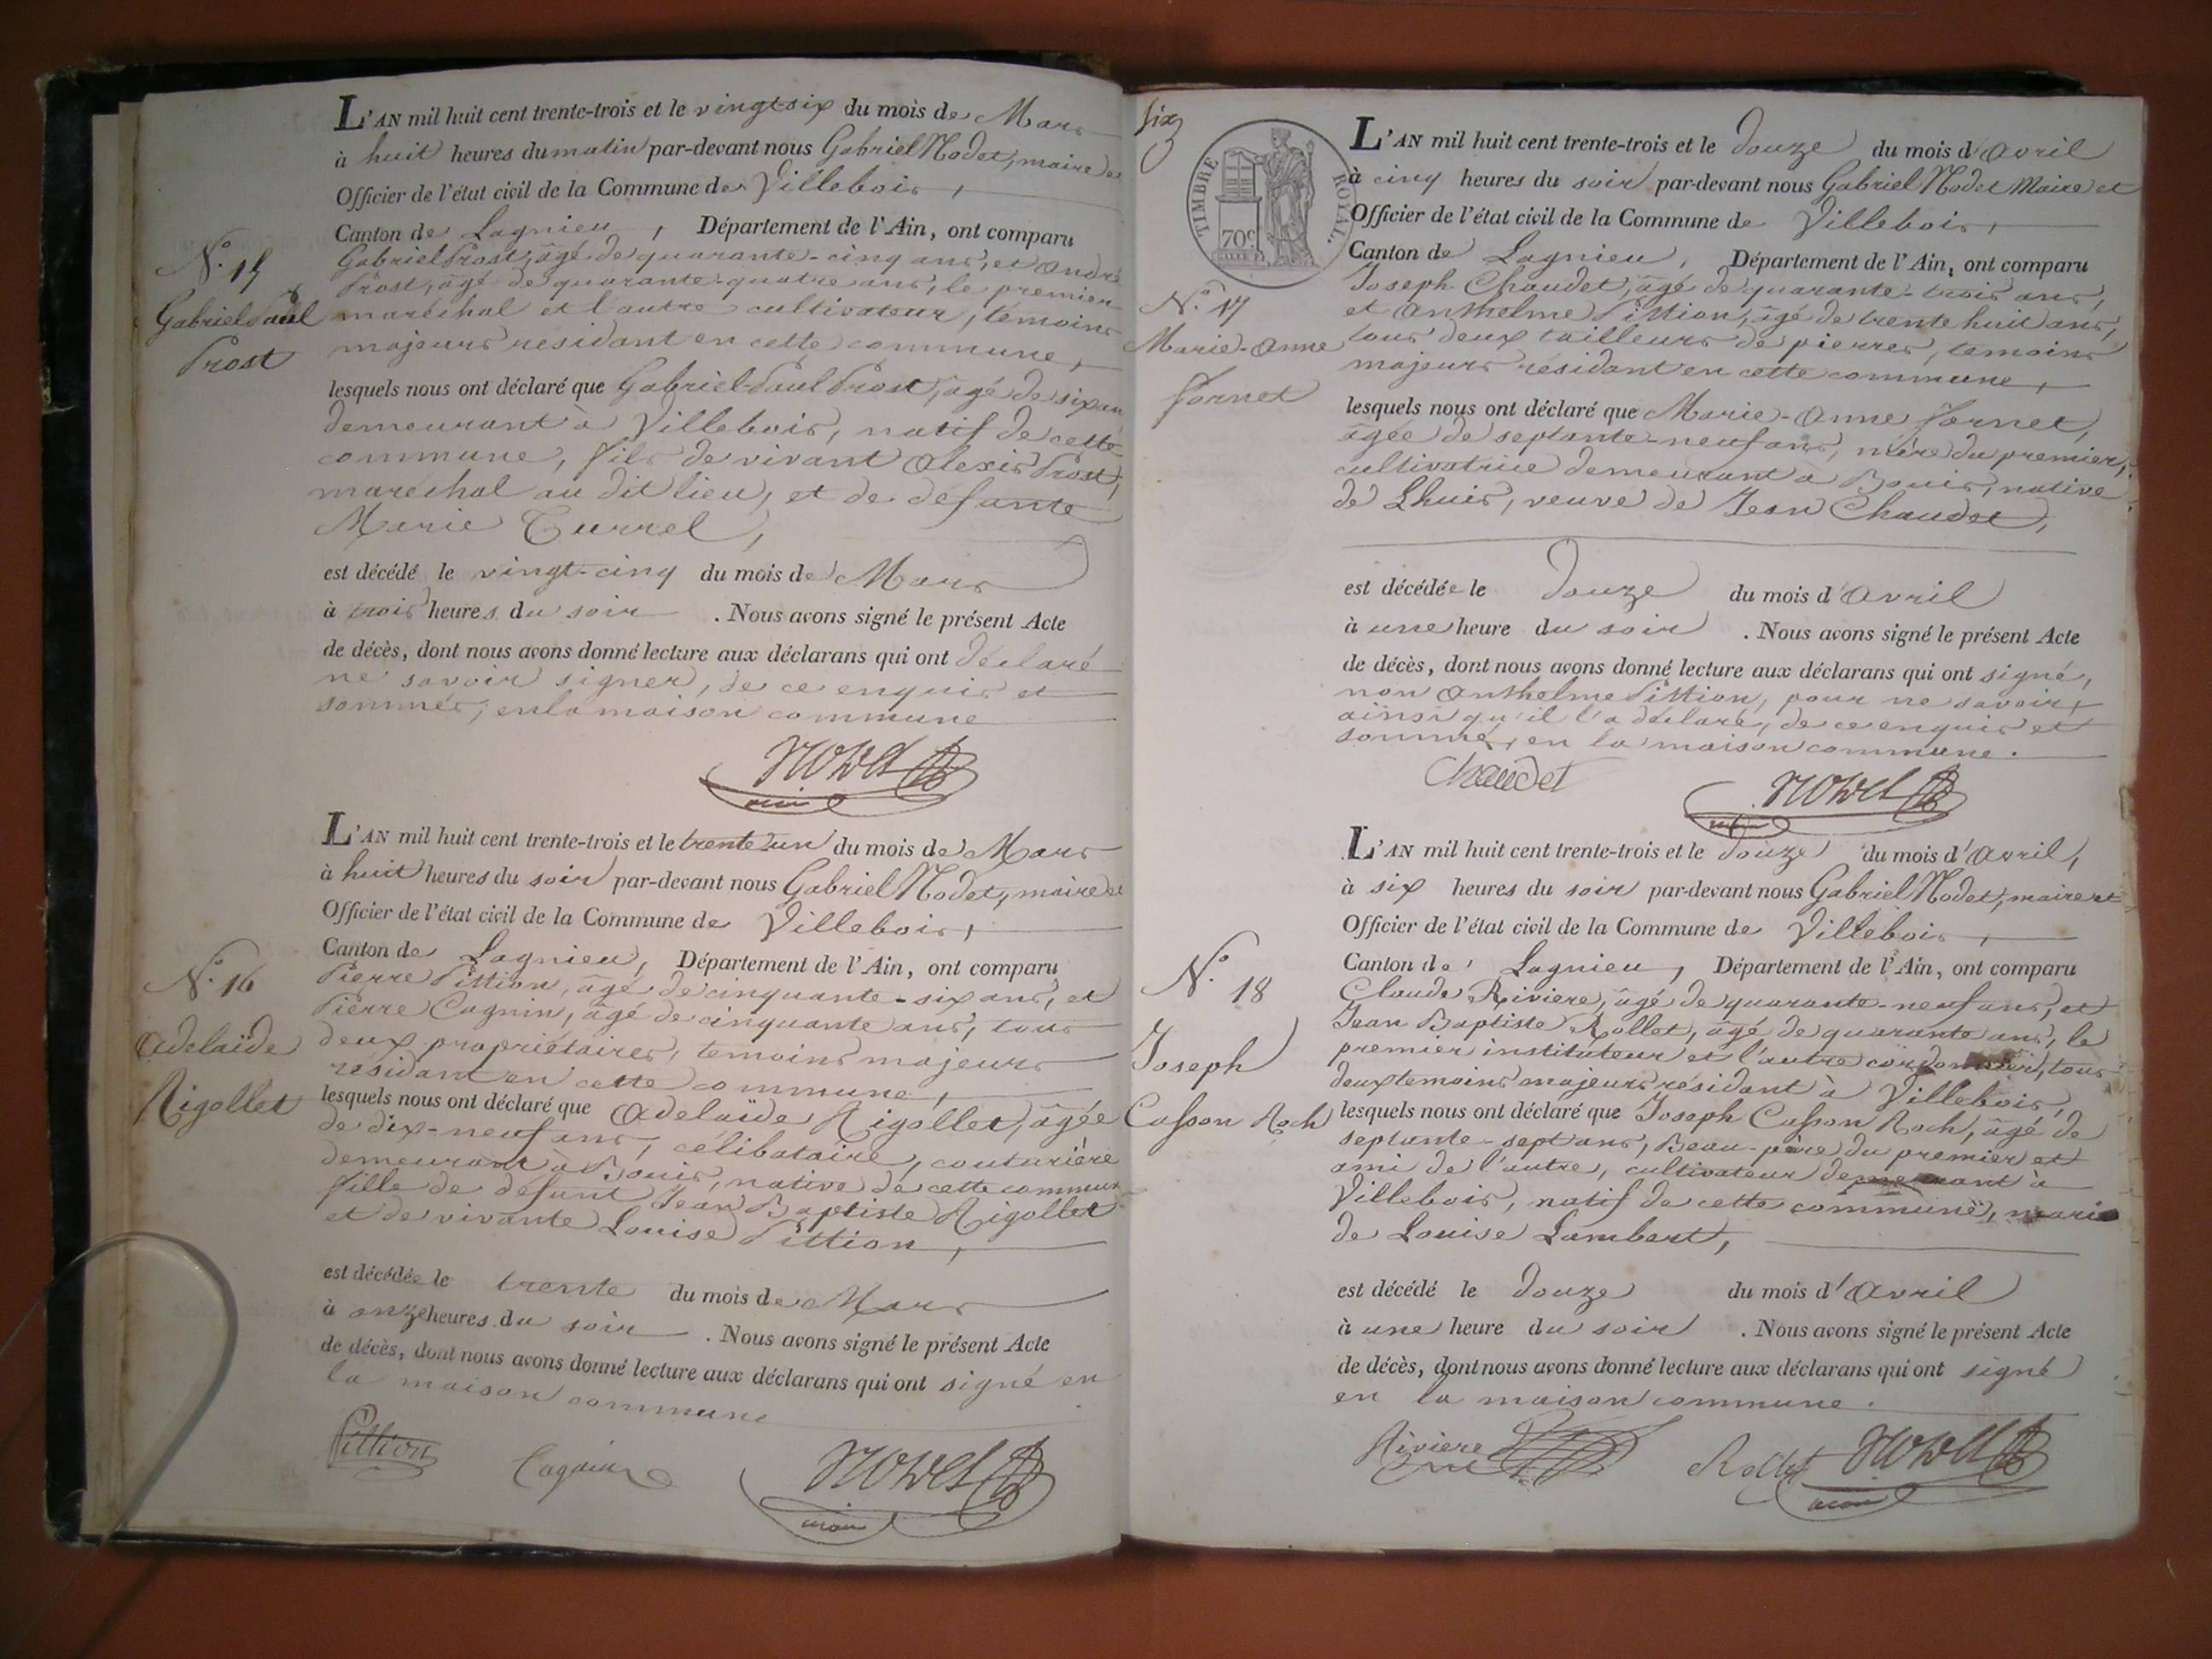 N.º 15
Gabriel Paul
Prost
L'AN mil huit cent trente-trois et le vingt-six du mois de Mars
à huit heures du matin par-devant nous Gabriel Nodet, maire et
Officier de l'état civil de la Commune de Villebois,
Canton de Lagnieu, Département de l'Ain, ont comparu
Gabriel Prost, âgé de quarante-cinq ans, et André
Prost, âgé de quarante-quatre ans, le premier
maréchal et l'autre cultivateur, témoins
majeurs résidant en cette commune,
lesquels nous ont déclaré que Gabriel-Paul Prost, âgé de six ans
demeurant à Villebois, natif de cette
commune, fils de vivant Alexis Prost,
maréchal au dit lieu, et de défunte
Marie Currel,
est décédé le vingt-cinq du mois de Mars
à trois heures du soir . Nous avons signé le présent Acte
de décès, dont nous avons donné lecture aux déclarans qui ont déclaré
ne savoir signer, de ce enquis et
sommés, en la maison commune
Nodet
maire
N.º 16
Adelaïde
Rigollet
L'AN mil huit cent trente-trois et le trente un du mois de Mars
à huit heures du soir par-devant nous Gabriel Nodet, maire et
Officier de l'état civil de la Commune de Villebois,
Canton de Lagnieu, Département de l'Ain, ont comparu
Pierre Pittion, âgé de cinquante-six ans, et
Pierre Cagnin, âgé de cinquante ans, tous
deux propriétaires, temoins majeurs
résidant en cette commune,
lesquels nous ont déclaré que Adelaïde Rigollet, âgée
de dix-neuf ans, célibataire, couturière
demeurant à Bouis, native de cette commune
fille de défunt Jean Baptiste Rigollet
et de vivante Louise Pittion,
est décédée le trente du mois de Mars
à onze heures du soir . Nous avons signé le présent Acte
de décès, dont nous avons donné lecture aux déclarans qui ont signé en
la maison commune
Pittion Cagnin Nodet
maire
six
TIMBRE ROYAL.
70c
N.º 17
Marie-Anne
Fornet
L'AN mil huit cent trente-trois et le douze du mois d'Avril
à cinq heures du soir par-devant nous Gabriel Nodet Maire et
Officier de l'état civil de la Commune de Villebois,
Canton de Lagnieu, Département de l'Ain, ont comparu
Joseph Chaudet, âgé de quarante-trois ans,
et Anthelme Pittion, âgé de trente huit ans,
tous deux tailleurs de pierres, temoins
majeurs résidant en cette commune,
lesquels nous ont déclaré que Marie-Anne Fornet,
âgée de septante-neuf ans, mère du premier,
cultivatrice demeurant à Bouis, native
de Lhuis, veuve de Jean Chaudet,
est décédée le douze du mois d'Avril
à une heure du soir . Nous avons signé le présent Acte
de décès, dont nous avons donné lecture aux déclarans qui ont signé,
non Anthelme Pittion, pour ne savoir,
ainsi qu'il l'a déclaré, de ce enquis et
sommé, en la maison commune.
Chaudet Nodet
N.º 18
Joseph
Casson Roch
L'AN mil huit cent trente-trois et le douze du mois d'Avril,
à six heures du soir par-devant nous Gabriel Nodet, maire et
Officier de l'état civil de la Commune de Villebois,
Canton de Lagnieu, Département de l'Ain, ont comparu
Claude Riviere, âgé de quarante-neuf ans, et
Jean Baptiste Rollet, âgé de quarante ans, le
premier instituteur et l'autre cordonnier, tous
deux temoins majeurs résidant à Villebois,
lesquels nous ont déclaré que Joseph Casson Roch, âgé de
septante-sept ans, Beau-père du premier et
ami de l'autre, cultivateur demeurant à
Villebois, natif de cette commune, mari
de Louise Lambert,
est décédé le douze du mois d'Avril
à une heure du soir . Nous avons signé le présent Acte
de décès, dont nous avons donné lecture aux déclarans qui ont signé
en la maison commune.
Riviere Rollet Nodet
maire